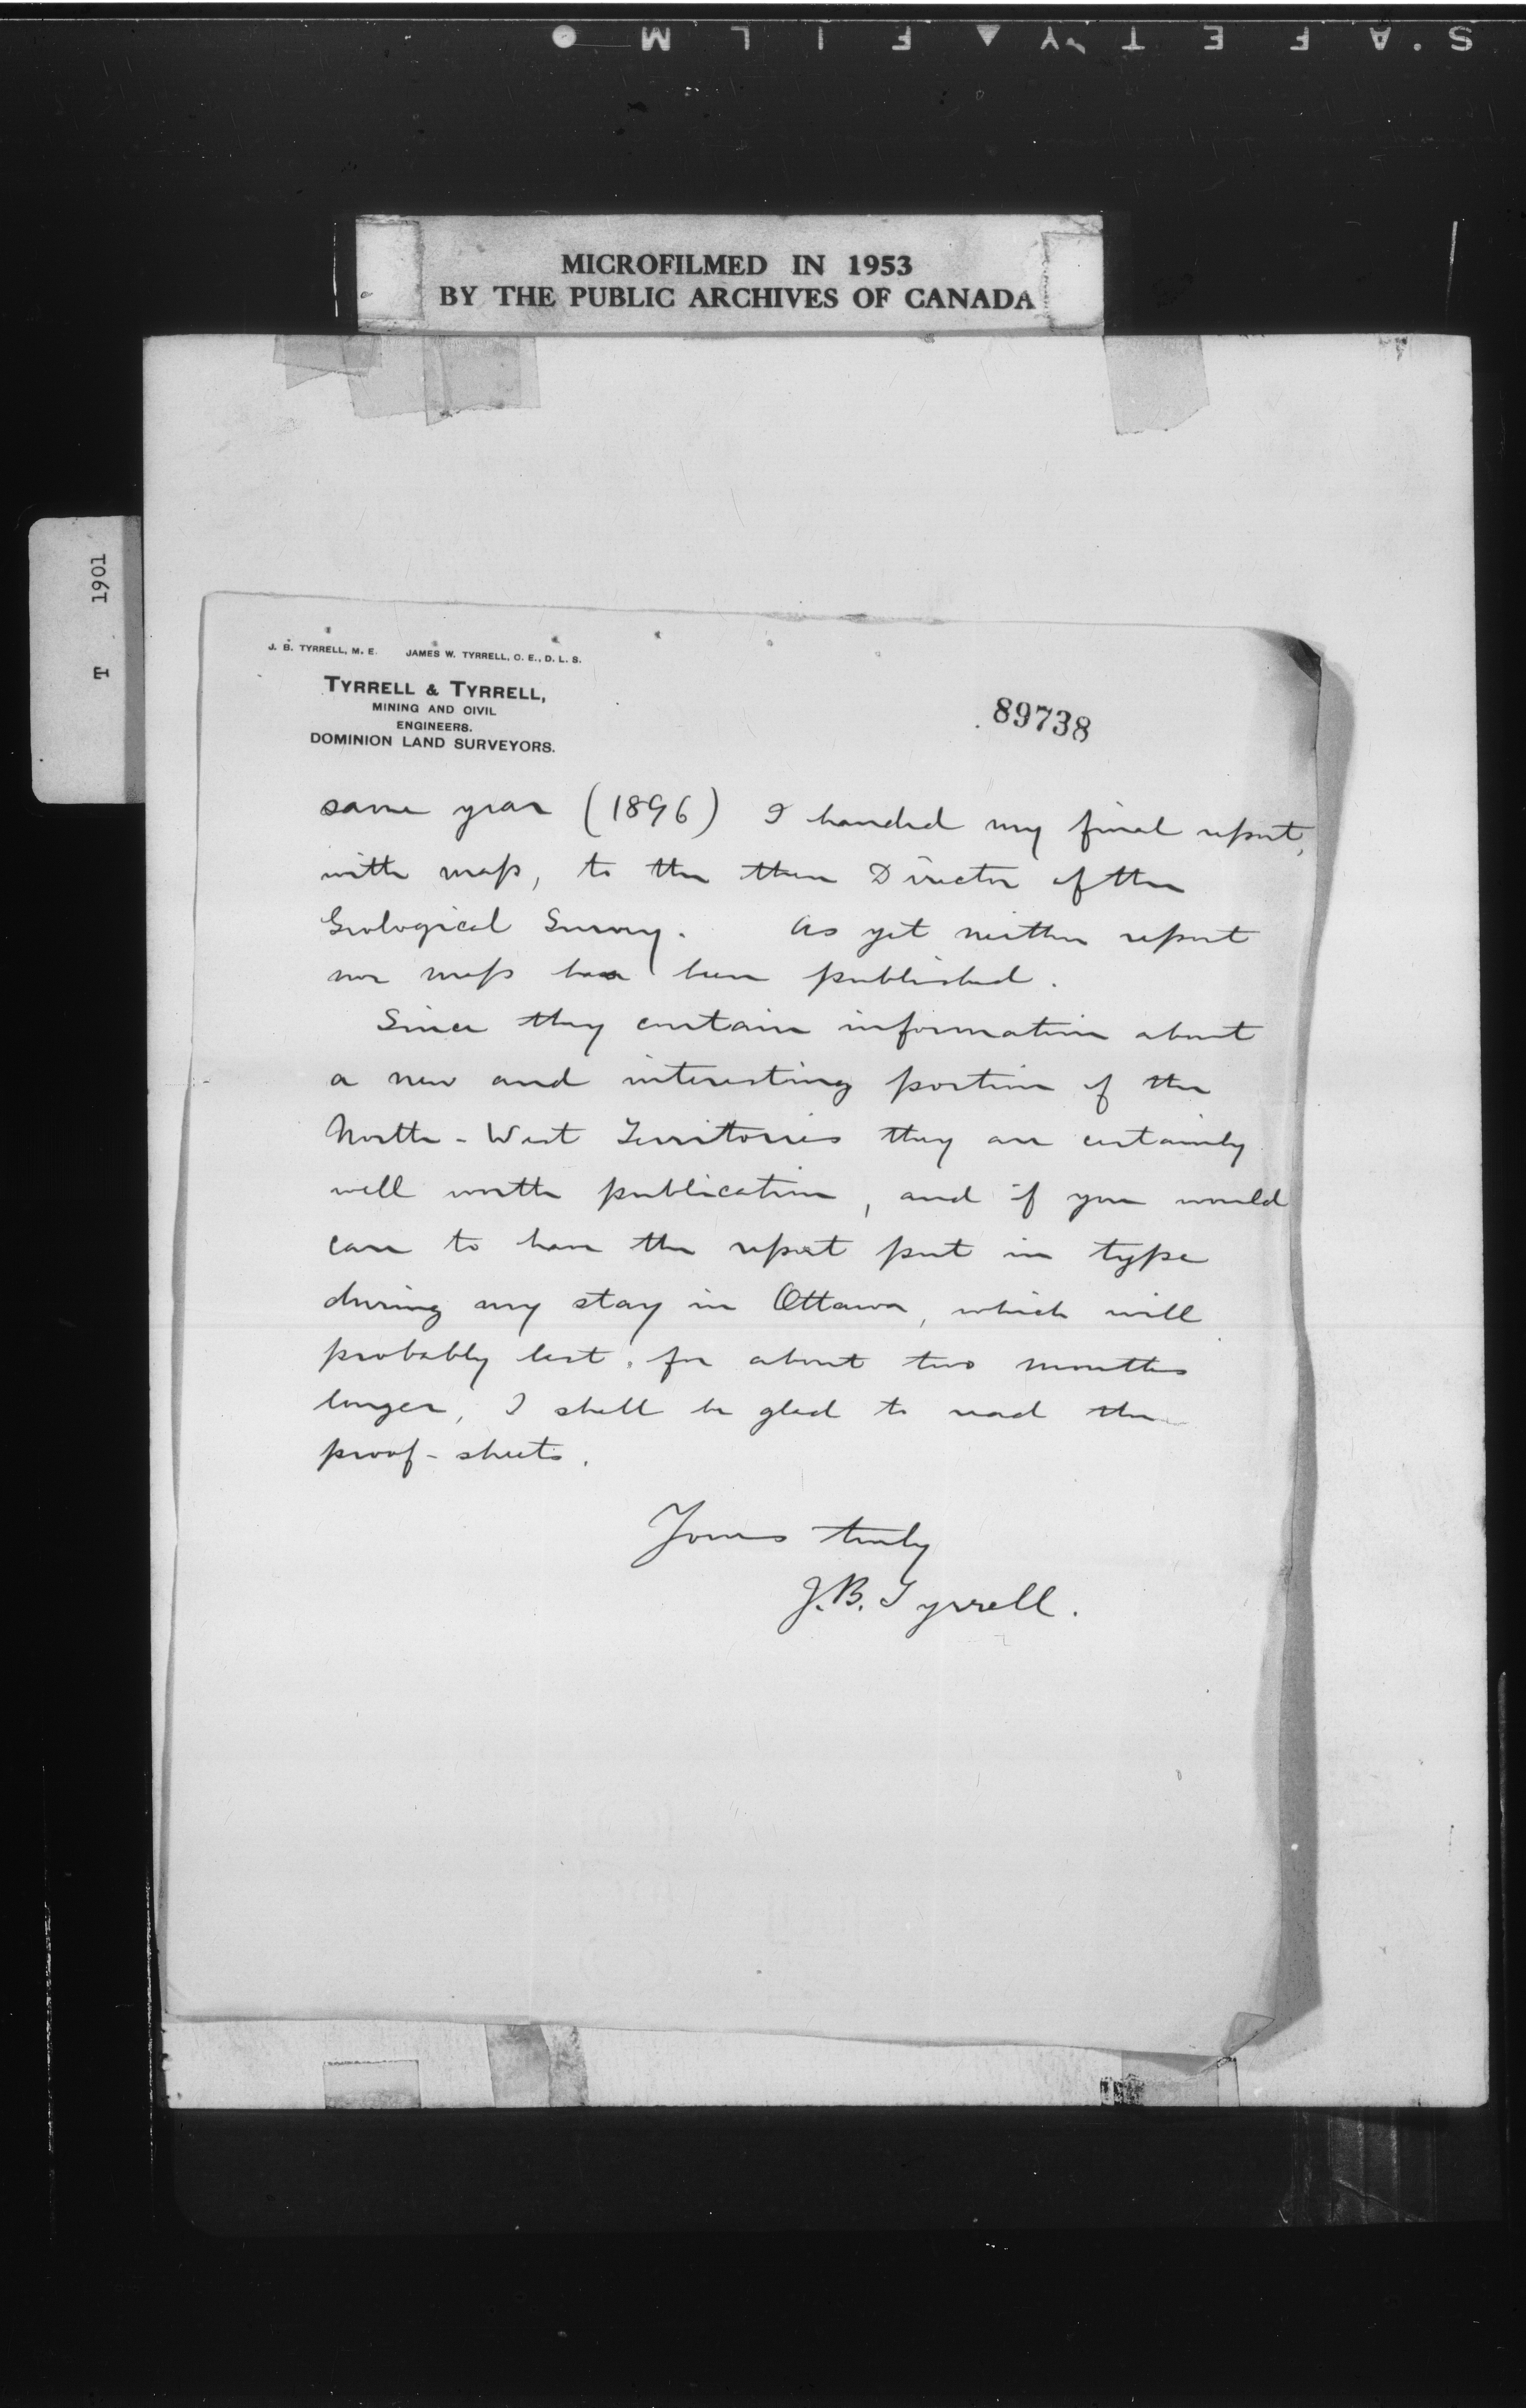 SAFETY▲FILM●
MICROFILMED IN 1953
BY THE PUBLIC ARCHIVES OF CANADA
T 1901
J. B. TYRRELL, M. E. JAMES W. TYRRELL, C. E., D. L. S.
TYRRELL & TYRRELL,
MINING AND CIVIL
ENGINEERS.
DOMINION LAND SURVEYORS.
89738
same year (1896) I handed my final report,
with map, to the then Director of the
Geological Survey. As yet neither report
nor map has been published.
Since they contain information about
a new and interesting portion of the
North-West Territories they are certainly
well worth publication, and if you would
care to have the report put in type
during my stay in Ottawa, which will
probably last for about two months
longer, I shall be glad to read the
proof-sheets.
Yours truly
J.B. Tyrrell.